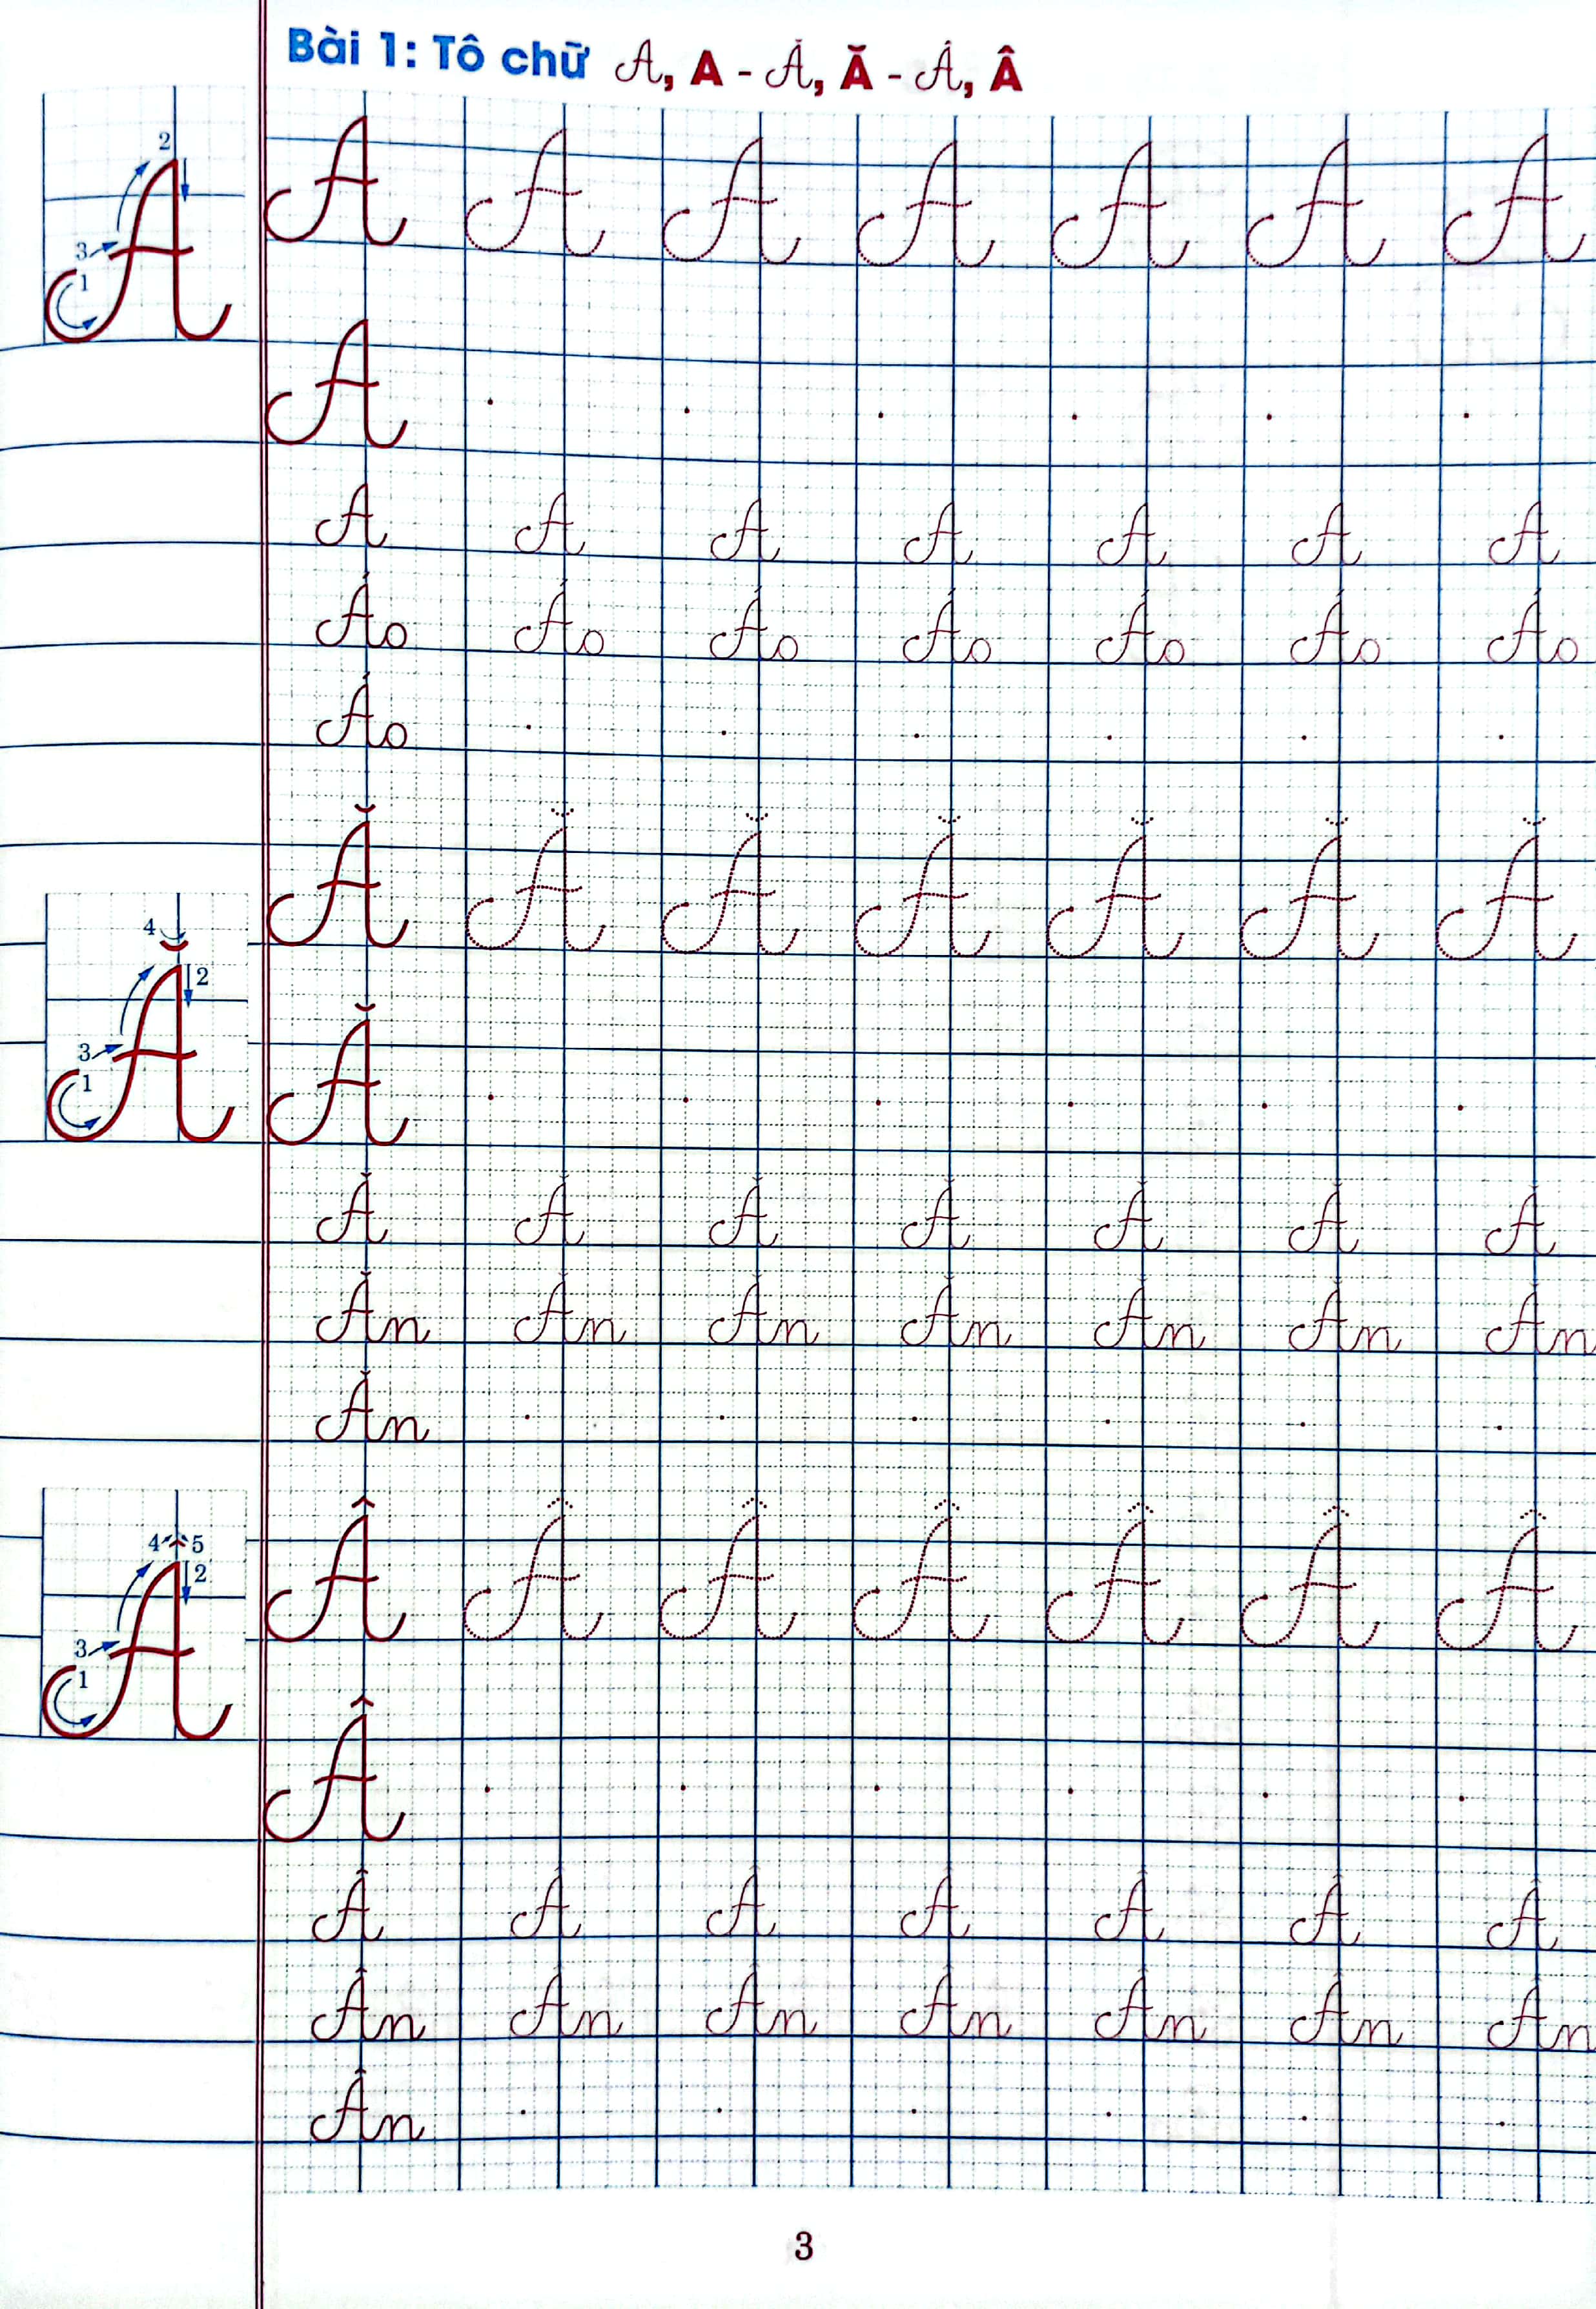 Bài 1: Tô chữ A, A - Ă, Ă - Â, Â
1 2 3
A A A A A A A
A
A A A A A A A
Áo Áo Áo Áo Áo Áo Áo
Áo
1 2 3 4
Ă Ă Ă Ă Ă Ă Ă
Ă
Ă Ă Ă Ă Ă Ă Ă
Ăn Ăn Ăn Ăn Ăn Ăn Ăn
Ăn
1 2 3 4 5
Â Â Â Â Â Â Â
Â
Â Â Â Â Â Â Â
Ân Ân Ân Ân Ân Ân Ân
Ân
3